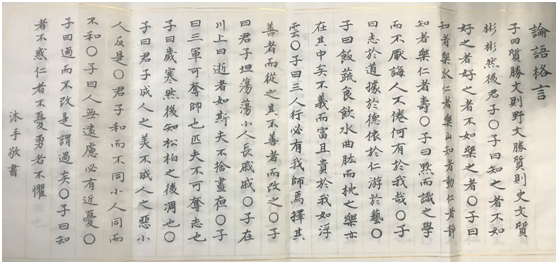 論語格言
子曰質勝文則野文勝質則史文質
彬彬然後君子〇子曰知之者不如
好之者好之者不如樂之者〇子曰
知者樂水仁者樂山知者動仁者靜
知者樂仁者壽〇子曰默而識之學
而不厭誨人不倦何有於我哉〇子
曰志於道據於德依於仁游於藝〇
子曰飯蔬食飲水曲肱而枕之樂亦
在其中矣不義而富且貴於我如浮
雲〇子曰三人行必有我師焉擇其
善者而從之其不善者而改之〇子
曰君子坦蕩蕩小人長戚戚〇子在
川上曰逝者如斯夫不捨晝夜〇子
曰三軍可奪帥也匹夫不可奪志也
子曰歲寒然後知松柏之後凋也〇
子曰君子成人之美不成人之惡小
人反是〇君子和而不同小人同而
不和〇子曰人無遠慮必有近憂〇
子曰過而不改是謂過矣〇子曰知
者不惑仁者不憂勇者不懼
沐手敬書